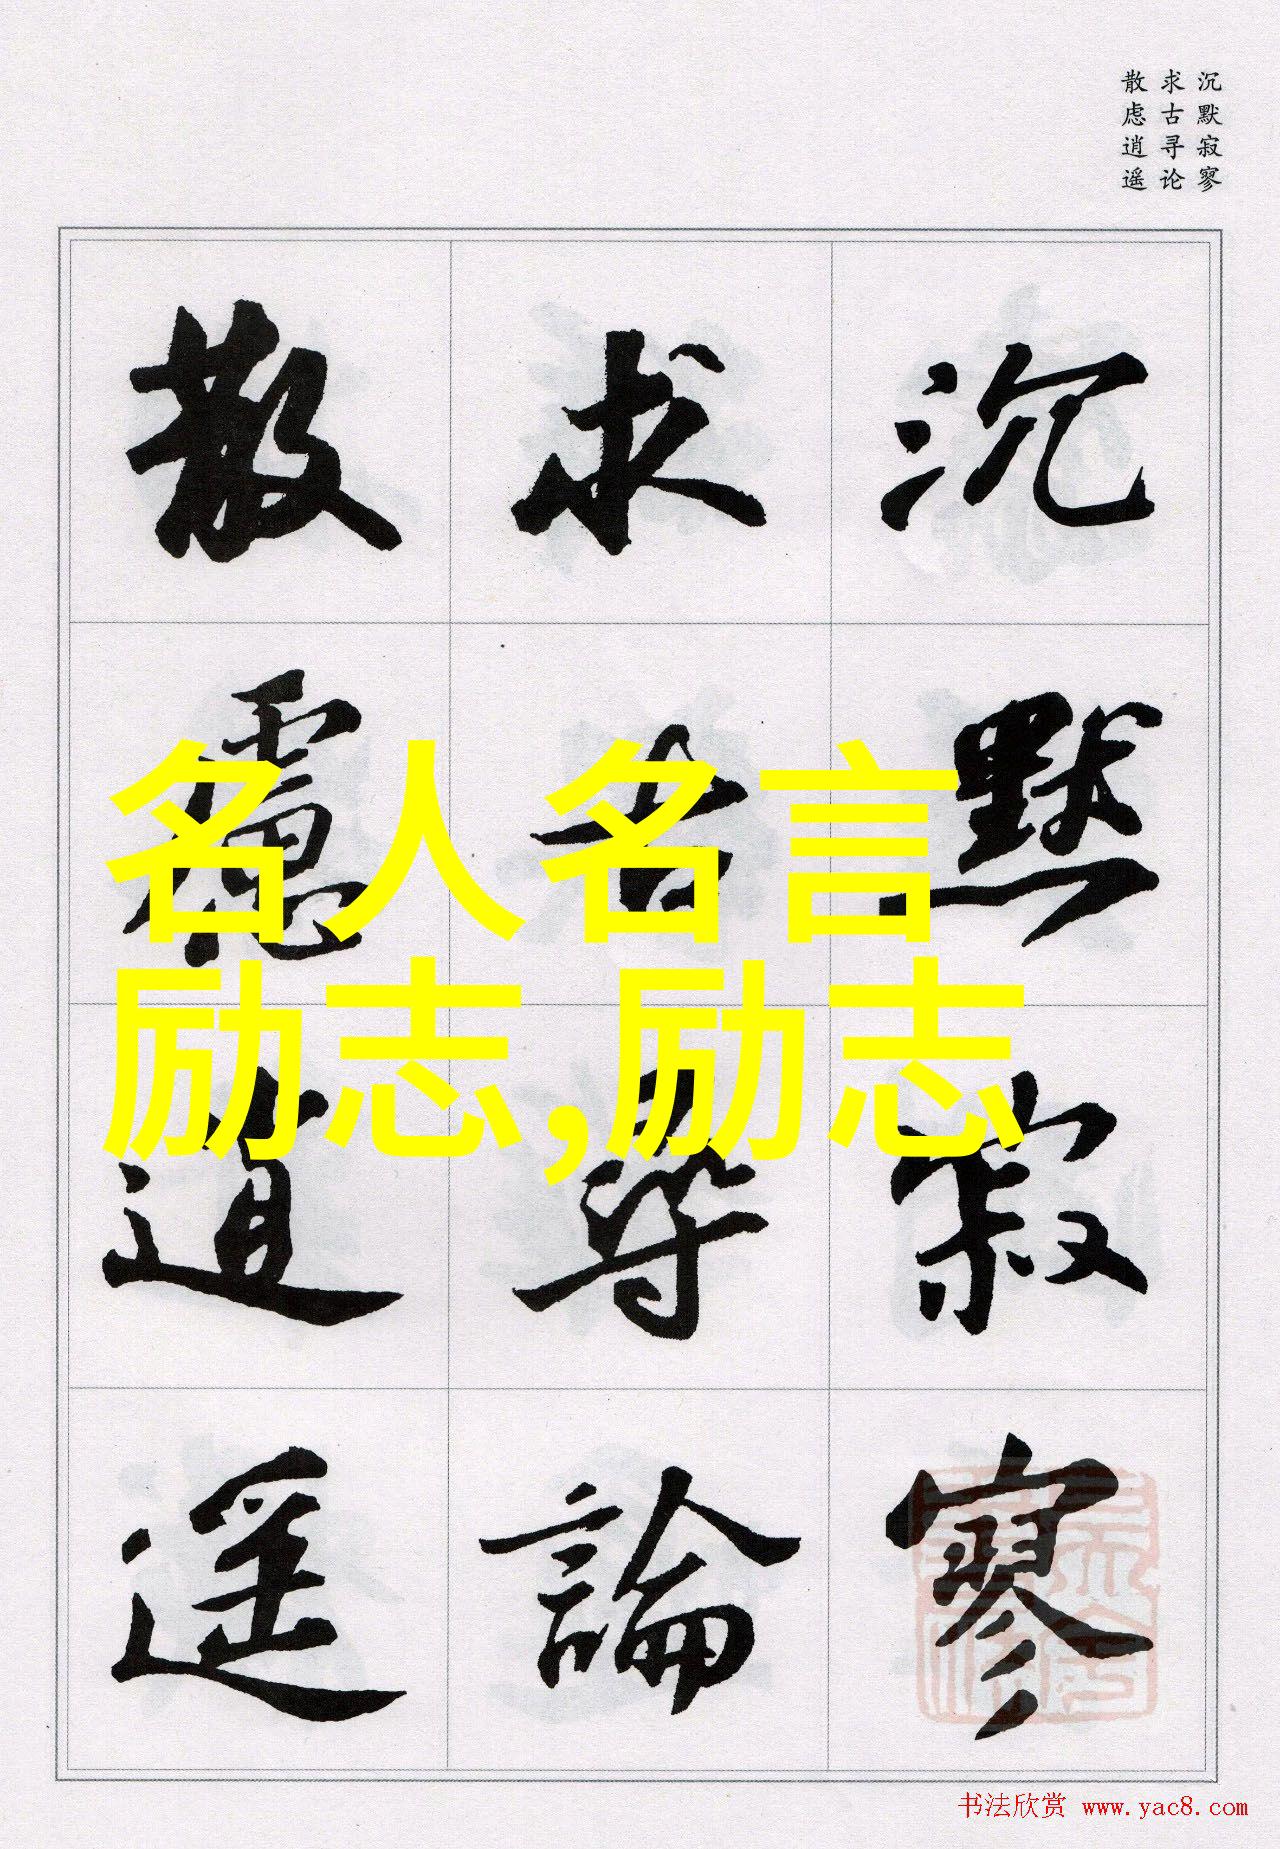 沉默寂寥
求古寻论
散虑逍遥
沉默寂寥
求古尋論
散慮逍遥
名人名言
励志,励志
书法欣赏 www.yac8.com